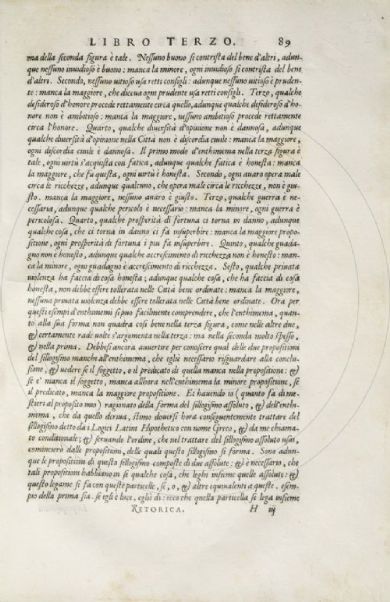 LIBRO TERZO. 89
ma della seconda figura è tale. Nessuno buono si contrista del bene d'altri, adun-
que nessuno invidioso è buono: manca la minore, ogni invidioso si contrista del bene
d'altri. Secondo, nessuno vitioso usa retti consigli: adunque nessuno vitioso è pruden-
te: manca la maggiore, che dicea ogni prudente usa retti consigli. Terzo, qualche
desideroso d'honore procede rettamente circa quello, adunque qualche desideroso d'ho-
nore non è ambitioso: manca la maggiore, nessuno ambitioso procede rettamente
circa l'honore. Quarto, qualche diversità d'opinione non è dannosa, adunque
qualche diversità d'opinione nella Città non è discordia civile: manca la maggiore,
ogni discordia civile è dannosa. Il primo modo d'enthimema nella terza figura è
tale, ogni virtù s'acquista con fatica, adunque qualche fatica è honesta: manca
la maggiore, che fu questa, ogni virtù è honesta. Secondo, ogni avaro opera male
circa le ricchezze, adunque qualcuno, che opera male circa le ricchezze, non è giu-
sto. manca la maggiore, nessuno avaro è giusto. Terzo, qualche guerra è ne-
cessaria, adunque qualche pericolo è necessario: manca la minore, ogni guerra è
pericolosa. Quarto, qualche prosperità di fortuna ci torna in danno, adunque
qualche cosa, che ci torna in danno ci fa insuperbire: manca la maggiore propo-
sitione, ogni prosperità di fortuna i piu fa insuperbire. Quinto, qualche guada-
gno non è honesto, adunque qualche accrescimento di ricchezza non è honesto: man-
ca la minore, ogni guadagno è accrescimento di ricchezza. Sesto, qualche privata
violenza ha faccia di cosa honesta; adunque qualche cosa, che ha faccia di cosa
honesta, non debbe essere tollerata nelle Città bene ordinate: manca la maggiore,
nessuna privata violenza debbe essere tollerata nelle Città bene ordinate. Ora per
questi esempi d'enthimemi si puo facilmente comprendere, che l'enthimema, quan-
to alla sua forma non quadra cosi bene nella terza figura, come nelle altre due,
& certamente rade volte s'argomenta nella terza: ma nella seconda molto spesso,
& nella prima. Debbesi ancora avvertire per conoscere qual delle due propositioni
del sillogismo manchi all'enthimema, che egli è necessario risguardare alla conclu-
sione, & vedere se il soggetto, o il predicato di quella manca nella propositione: &
se è manca il soggetto, manca allhora nell'enthimema la minore propositione, se
il predicato, manca la maggiore propositione. Et havendo io (quanto fa di me-
stieri al proposito mio) ragionato della forma del sillogismo assoluto, & dell'enthi-
mema, che da quello deriva, stimo doversi hora conseguentemente trattare del
sillogismo detto da i Logici Latini Hipothetico con nome Greco, & da me chiama-
to conditionale; & servando l'ordine, che nel trattare del sillogismo assoluto usai,
comincierò dalle propositioni, delle quali questo sillogismo si forma. Sono adun-
que le propositioni di questo sillogismo composte di due assolute: & è necessario, che
tali propositioni habbiano in se qualche cosa, che leghi insieme quelle assolute: &
questo legame si fa con queste particelle, se, o, & altre equivalenti a queste. esem-
pio della prima sia. se egli è luce, egli è dì: ecco che quella particella se lega insieme
RETORICA. H iij